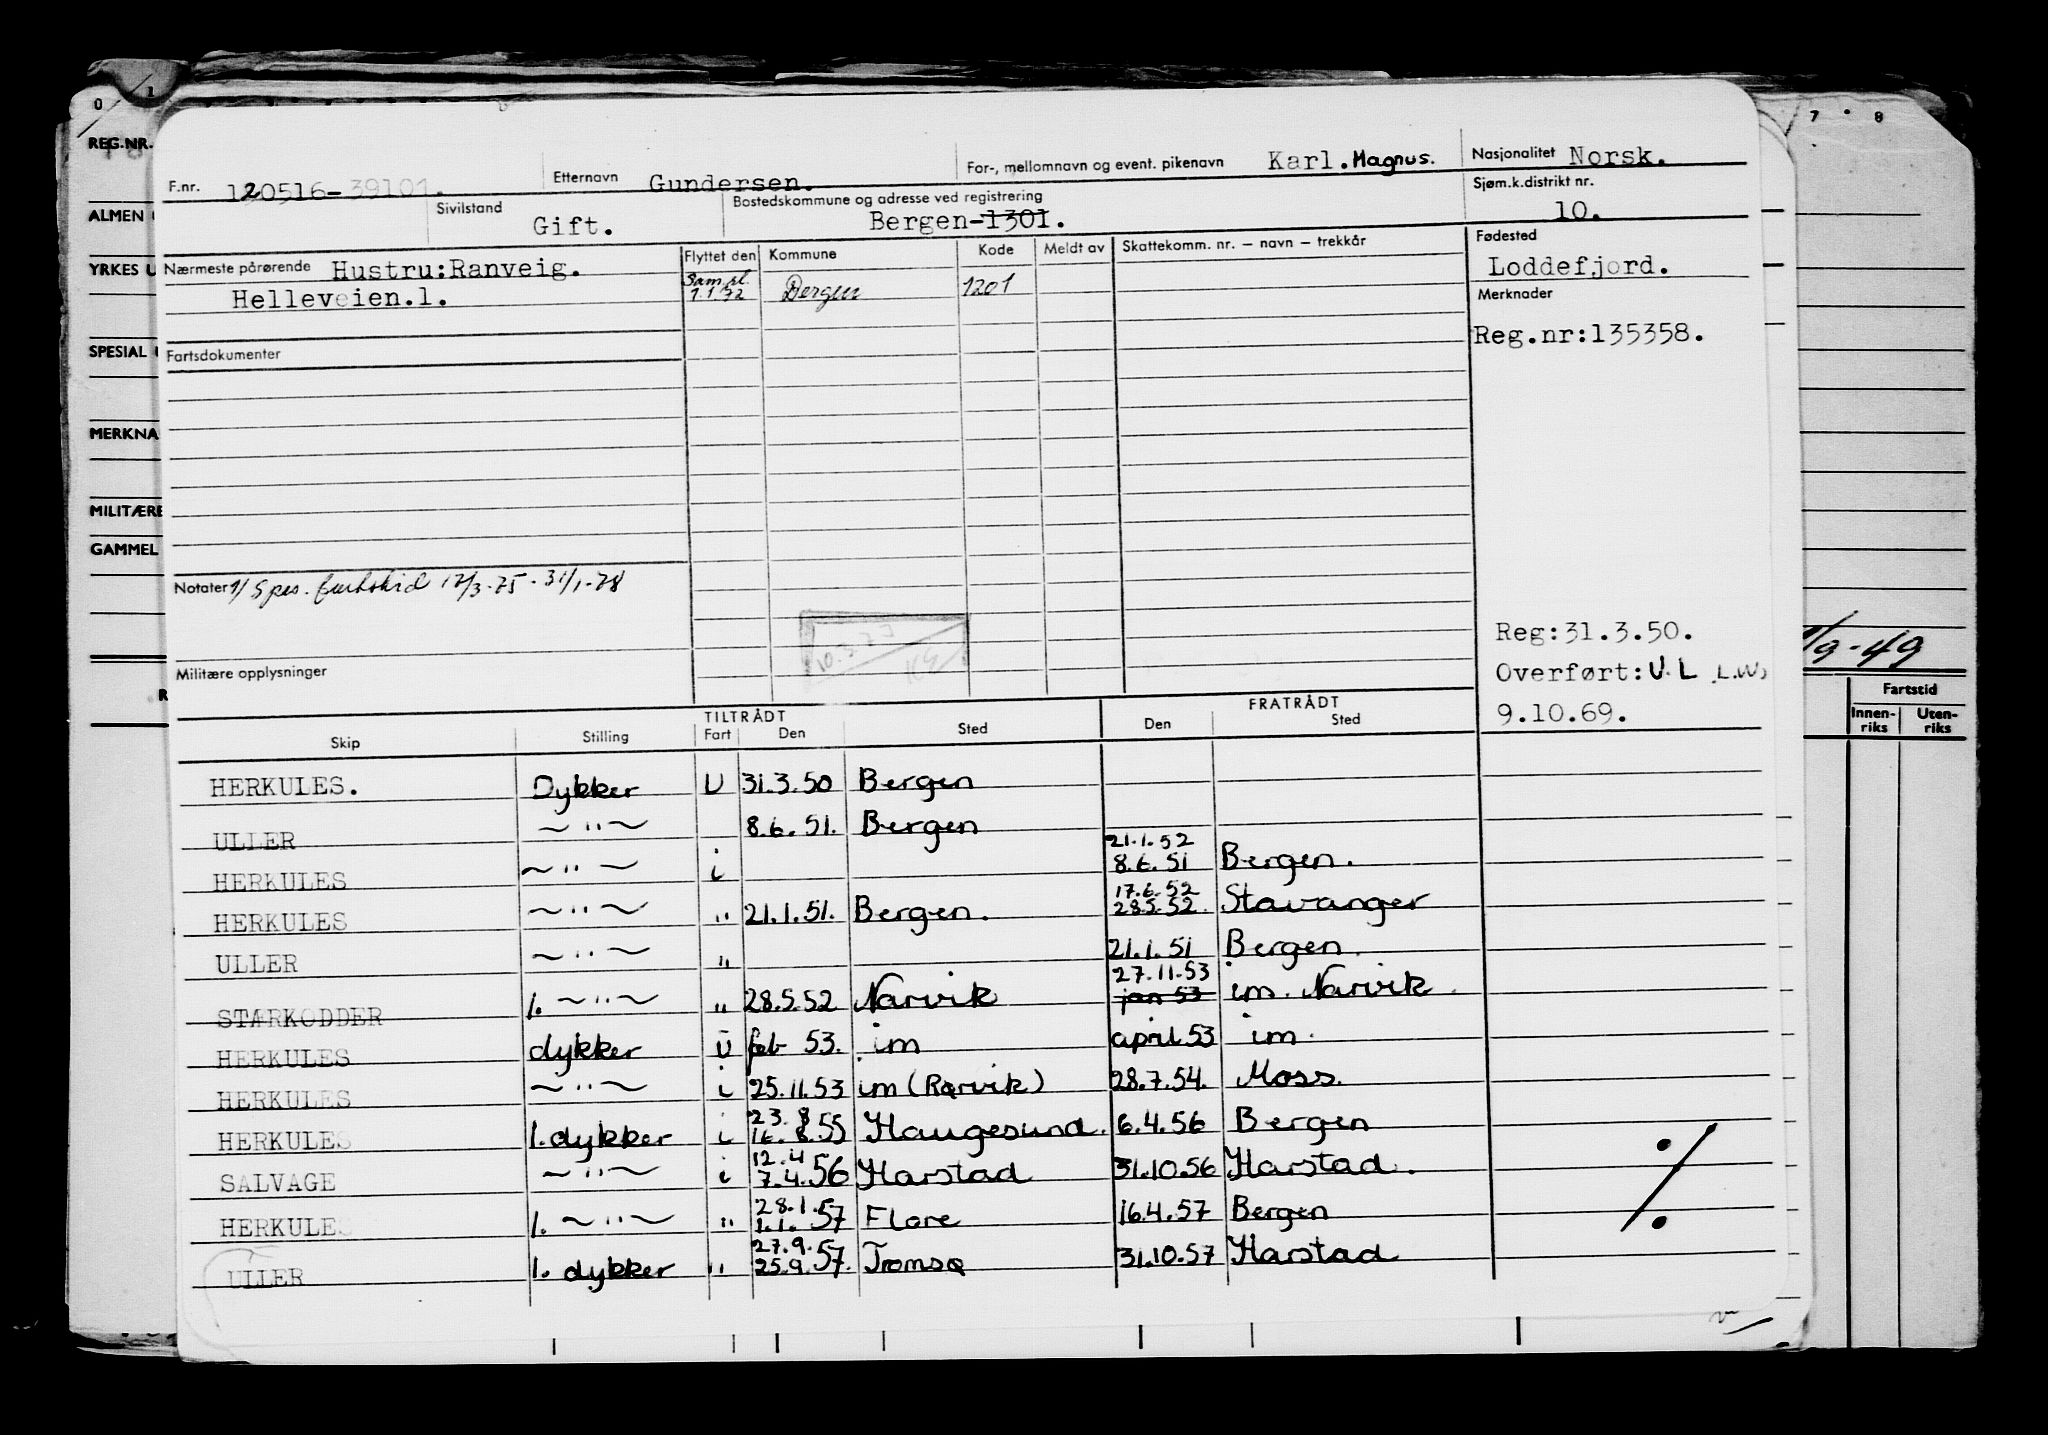 0 1 7 8
REG.NR.
ALMEN
YRKES U
SPESIAL
MERKNA
MILITÆRE
GAMMEL
F.nr. 120516-39101. Etternavn Gundersen. For-, mellomnavn og event. pikenavn Karl. Magnus. Nasjonalitet Norsk.
Sivilstand Gift. Bostedskommune og adresse ved registrering Bergen-1301. Sjøm.k.distrikt nr. 10.
Nærmeste pårørende Hustru:Ranveig. Flyttet den Kommune Kode Meldt av Skattekomm. nr. – navn – trekkår Fødested
Loddefjord.
Helleveien.1. Sam.sl. 1.1.72 Bergen 1201 Merknader
Reg.nr:135358.
Fartsdokumenter
Notater 1/ Spes. 17/3-75 - 31/1-78
Reg:31.3.50.
Overført: U. L L.W.
9.10.69.
1/9-49
Militære opplysninger
TILTRÅDT FRATRÅDT
Skip Stilling Fart Den Sted Den Sted
Fartstid
Innen-riks Uten-riks
HERKULES. Dykker U 31.3.50 Bergen
ULLER ~"~ 8.6.51. Bergen
21.1.52
HERKULES ~"~ i 8.6.51 Bergen.
17.6.52
HERKULES ~"~ " 21.1.51. Bergen. 28.5.52. Stavanger
ULLER ~"~ " 21.1.51 Bergen.
27.11.53
STÆRKODDER 1. ~"~ " 28.5.52 Narvik jan 53 im. Narvik.
HERKULES dykker U feb 53. im april 53 im.
HERKULES ~"~ i 25.11.53 im (Rørvik) 28.7.54. Moss.
23.8
HERKULES 1. dykker i 16.8.55 Haugesund. 6.4.56 Bergen
12.4
SALVAGE ~"~ i 7.4.56 Harstad 31.10.56 Harstad.
28.1.57
HERKULES 1. ~"~ " 1.1.57 Florø 16.4.57 Bergen
27.9.57
ULLER 1. dykker " 25.9.57. Tromsø 31.10.57 Harstad